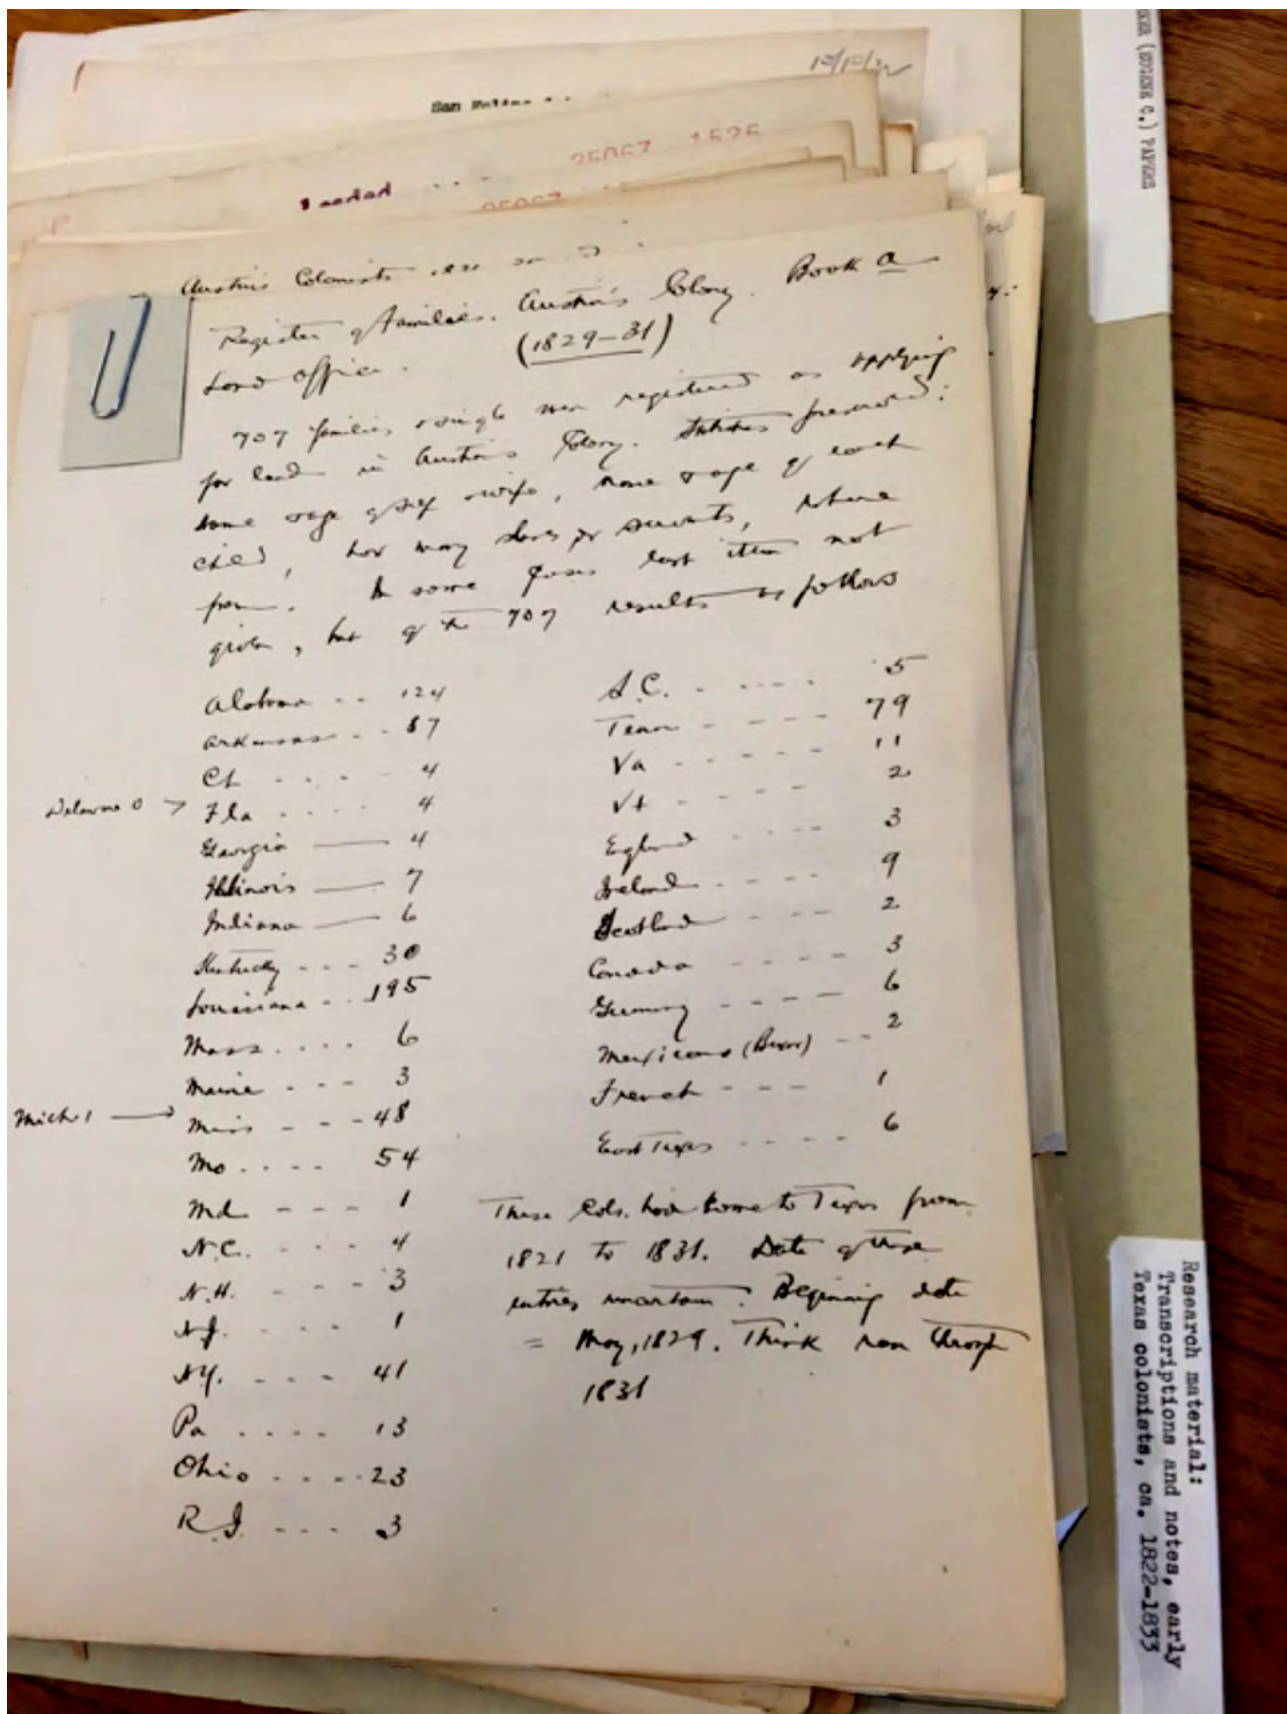 10/10/
San
25067 1526
Austin's Colonists
Register of families. Austin's Colony. Book a
Land Office. (1829-31)
707 families & single men registered as applying
for land in Austin's Colony. Statistics preserved:
name & age of self & wife, name & age of each
child, how many slaves or servants, where
from. In some cases last item not
given, but of the 707 results as follows
Alabama -- 124
Arkansas -- 87
Ct ---- 4
Delaware 0 → Fla ---- 4
Georgia — 4
Illinois — 7
Indiana — 6
Kentucky --- 30
Louisiana -- 195
Mass .... 6
Maine --- 3
Mich. 1 → Miss --- 48
Mo .... 54
Md --- 1
N.C. --- 4
N.H. --- 3
N.J. --- 1
N.Y. --- 41
Pa .... 13
Ohio .... 23
R.I. --- 3
S.C. ---- 5
Tenn ---- 79
Va ----- 11
Vt ---- 2
England ---- 3
Ireland ---- 9
Scotland ---- 2
Canada ---- 3
Germany ---- 6
Mexicans (Bexar) -- 2
French --- 1
East Texas ---- 6
These Cols. had come to Texas from
1821 to 1831. Date of these
entries uncertain. Beginning date
= May, 1829. Think ran through
1831
(EUGENE C.) PAPERS
Research material:
Transcriptions and notes, early
Texas colonists, ca. 1822-1833